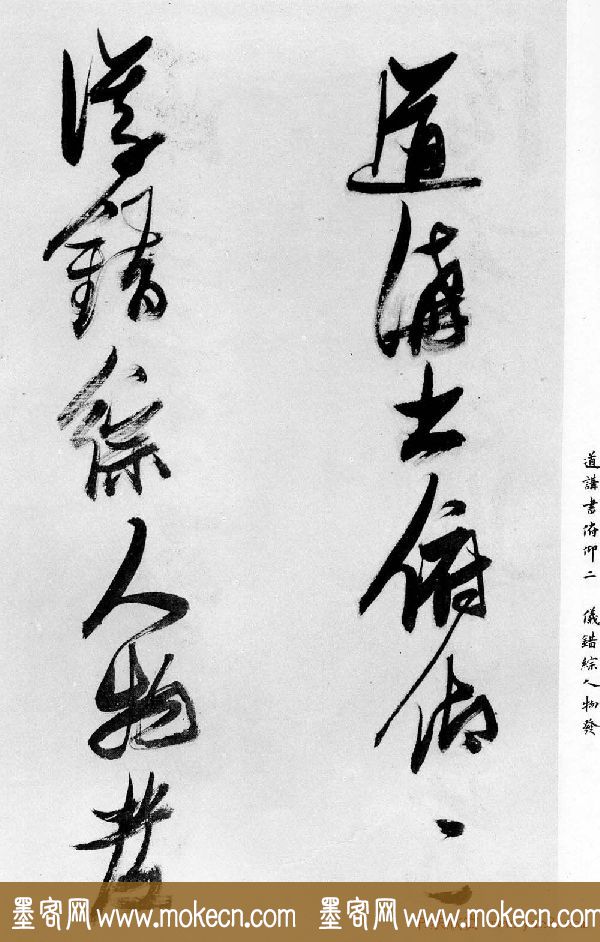 道講書俯仰二
儀錯綜人物發
道講書俯仰二　儀錯綜人物發
墨客网 www.mokecn.com 墨客网 www.mokecn.com